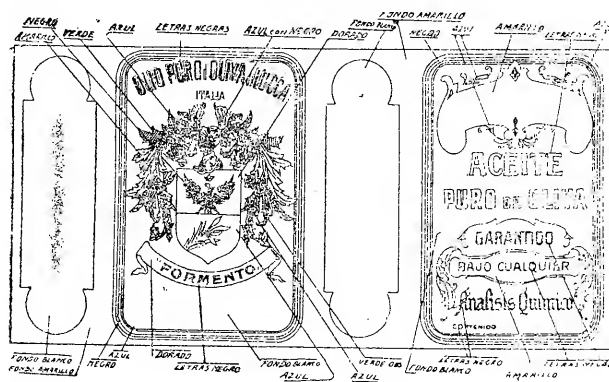 NEGRO
AMARILLO
VERDE
AZUL
LETRAS NEGRAS
AZUL CON NEGRO
DORADO
FONDO BLANCO
FONDO AMARILLO
NEGRO
AZUL
AMARILLO
OLIO PURO D'OLIVA LUCCA
ITALIA
"FORMENTO"
ACEITE
PURO DE OLIVA
GARANTIDO
BAJO CUALQUIER
Analisis Quimico
CONTENIDO
FONDO BLANCO
FONDO AMARILLO
AZUL
NEGRO
DORADO
LETRAS NEGRO
FONDO BLANCO
AZUL
AZUL
FONDO BLANCO
LETRAS NEGRO
AMARILLO